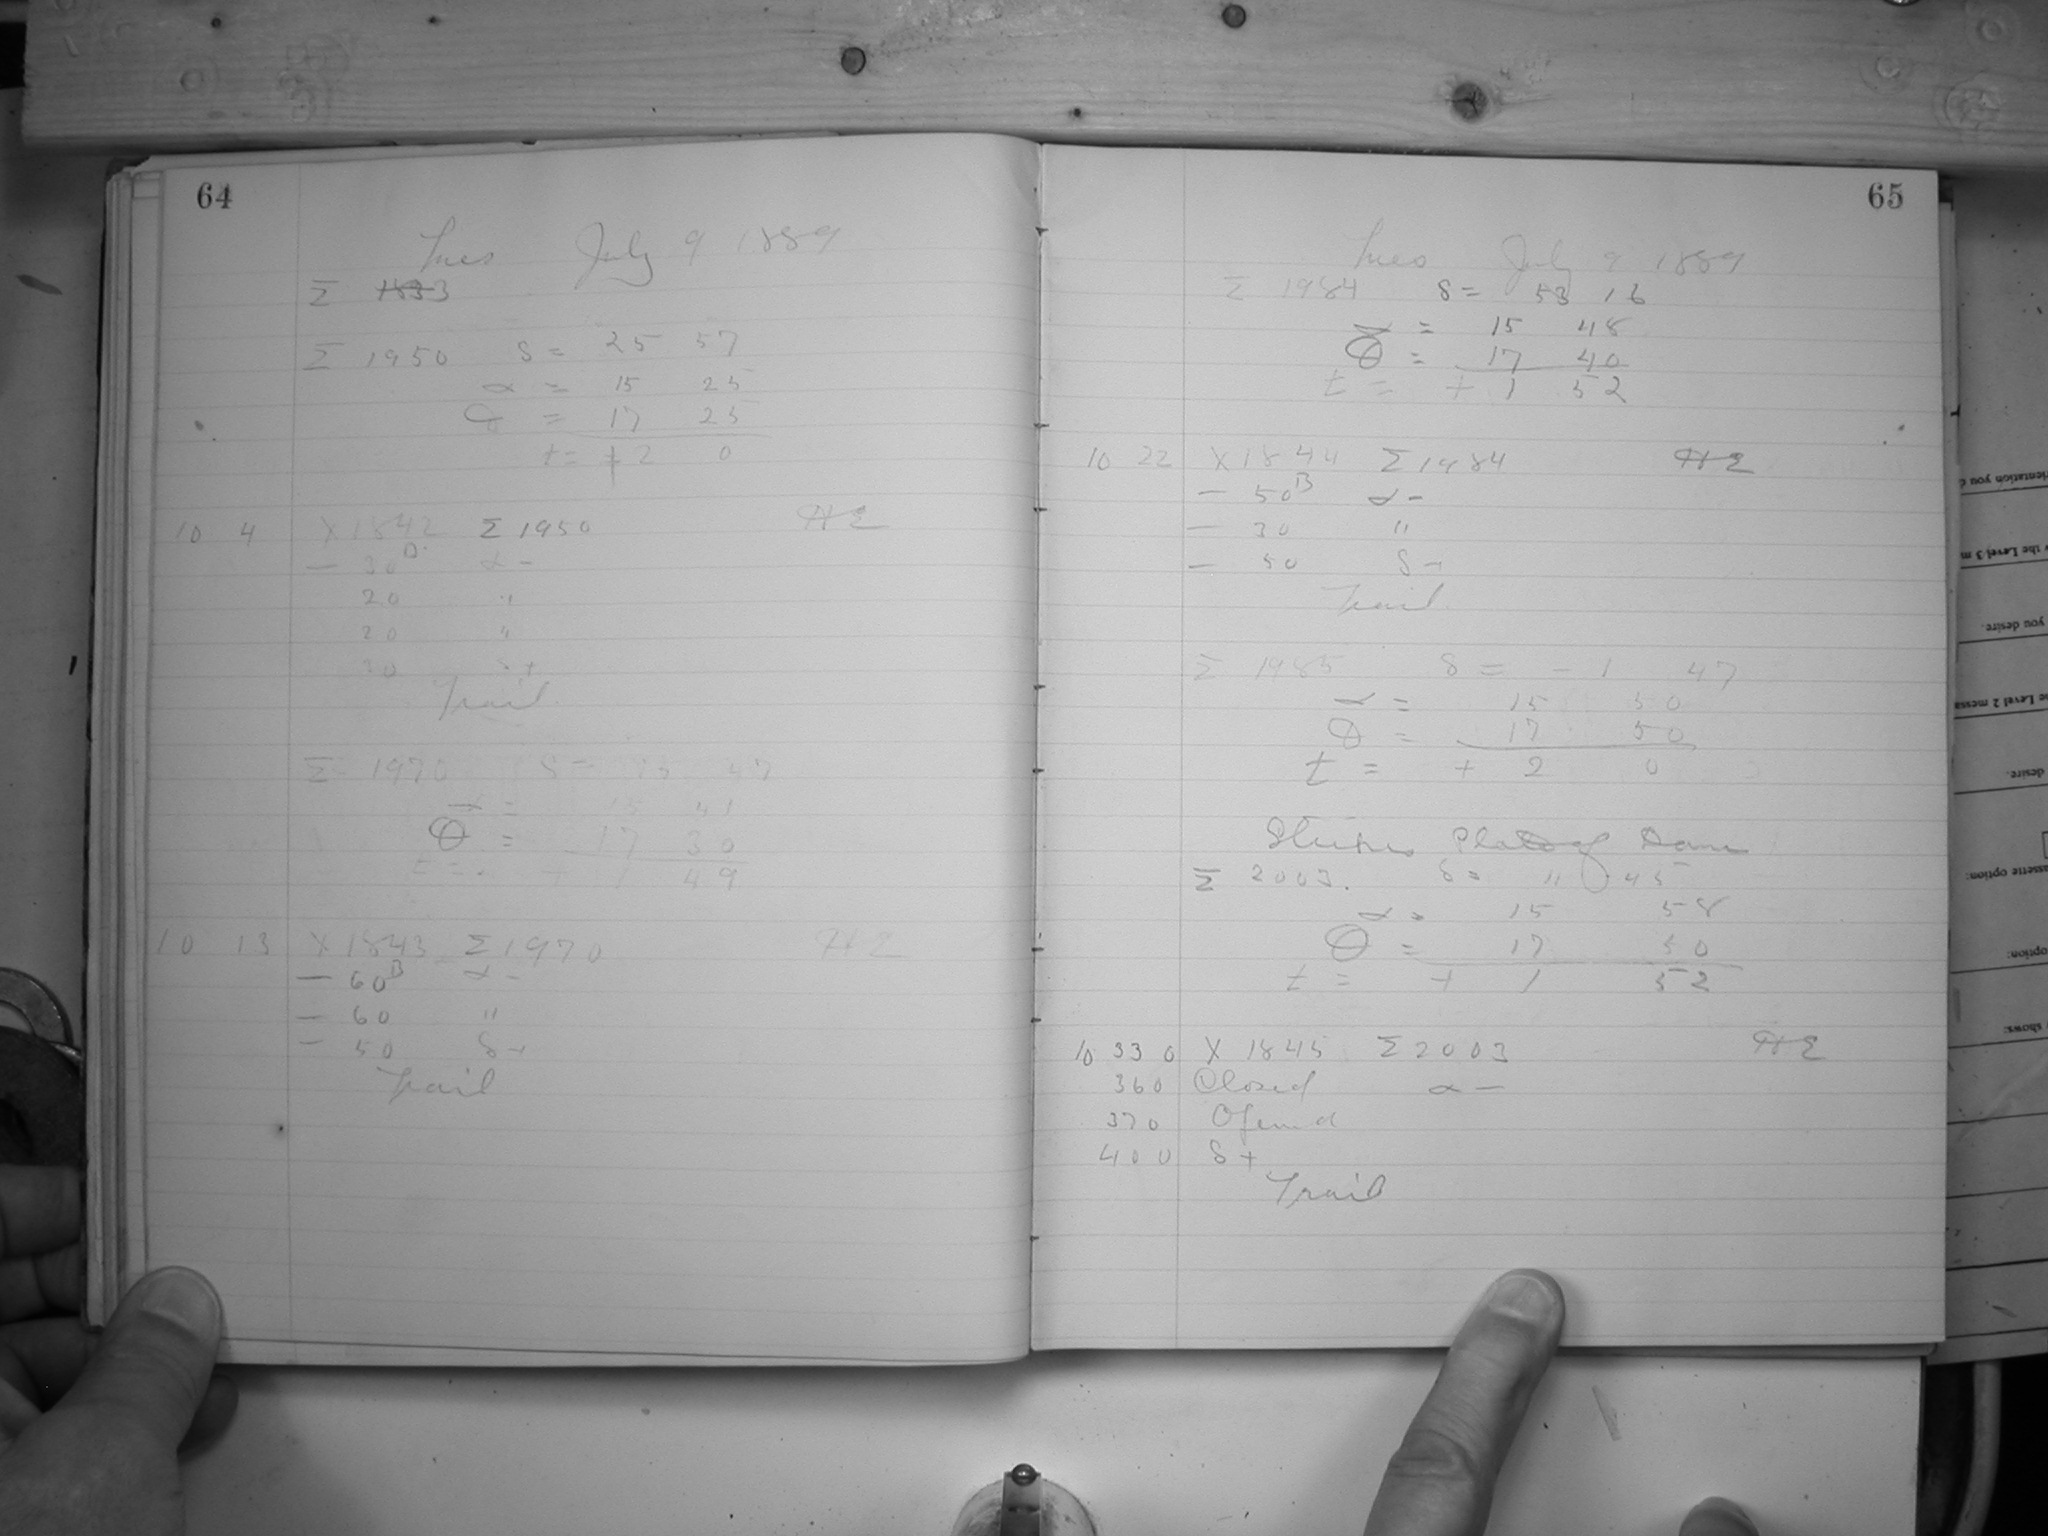 64
Tues July 9 1889
Σ 1833
Σ 1950 δ = 25 57
α = 15 25
θ = 17 25
t = + 2 0
10 4 X 1842 Σ 1950 HE
— 30 B α -
20 "
20 "
30 δ +
Trail
Σ 1970 δ = 13 47
α = 15 41
θ = 17 30
t = + 1 49
10 13 X 1843 Σ 1970 HE
— 60 B α -
— 60 "
— 50 δ +
Trail
65
Tues July 9 1889
Σ 1984 δ = 53 16
α = 15 48
θ = 17 40
t = + 1 52
10 22 X 1844 Σ 1984 HE
— 50 B α -
— 30 "
— 50 δ +
Trail
Σ 1985 δ = - 1 47
α = 15 50
θ = 17 50
t = + 2 0
Plate of Same
Σ 2003. δ = 11 45
α = 15 58
θ = 17 50
t = + 1 52
10 33 0 X 1845 Σ 2003 HE
36 0 Closed α —
37 0 Opened
40 0 δ +
Trail
you desire.
desire.
option:
option:
shows: